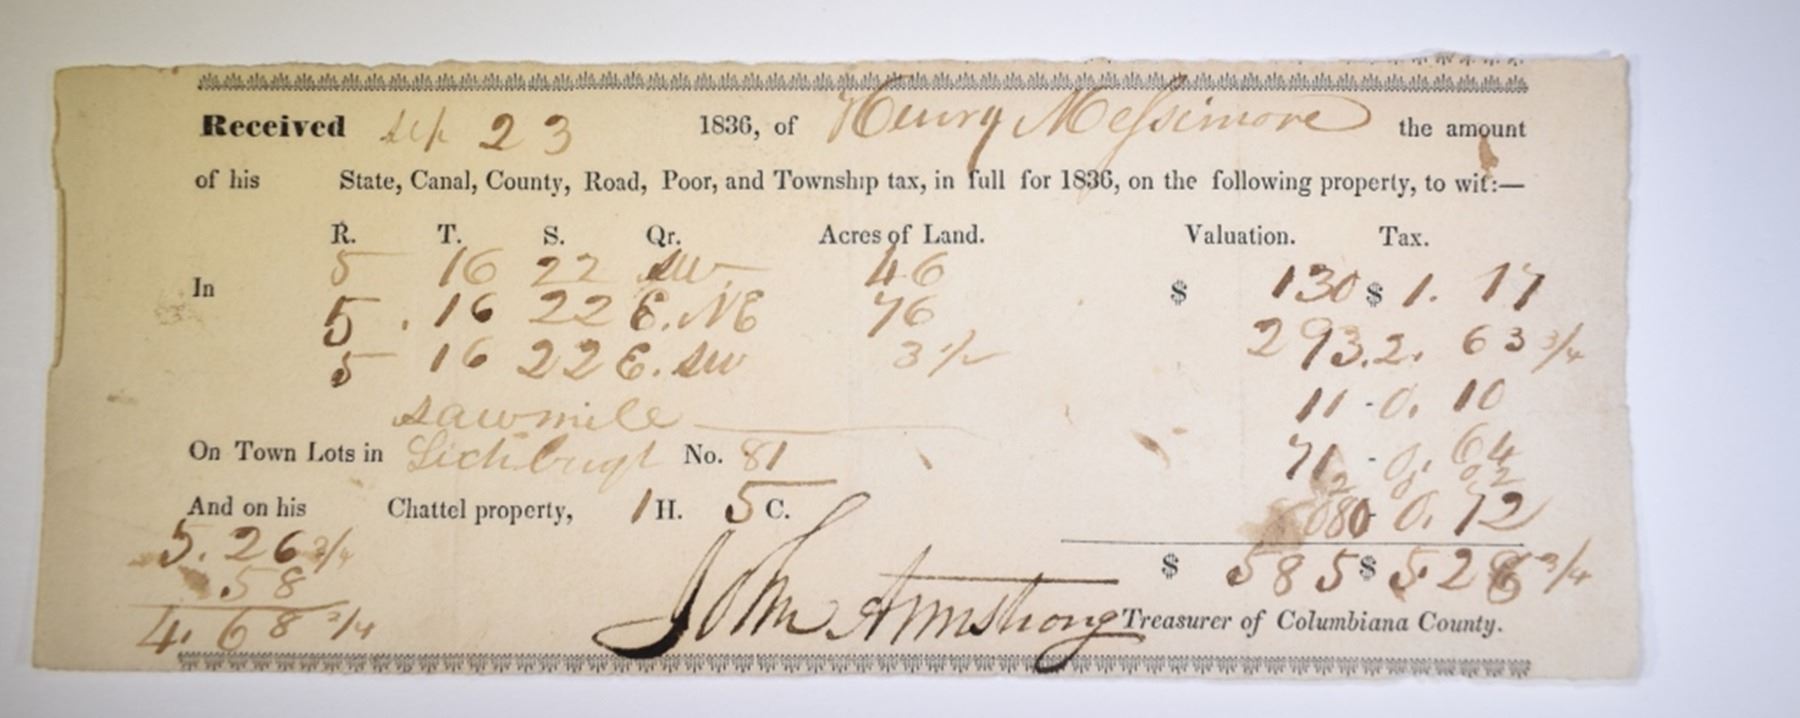 Received Sep 23 1836, of Henry Messimore the amount
of his State, Canal, County, Road, Poor, and Township tax, in full for 1836, on the following property, to wit:—
R. T. S. Qr. Acres of Land. Valuation. Tax.
In 5 16 22 SW 46 $ 130 $ 1. 17
5 . 16 22 E. NE 76 293. 2. 63 3/4
5 16 22 E. SW 3 1/2 11 - 0. 10
sawmile 71 - 0. 64
On Town Lots in No. 81 2 0 02
And on his Chattel property, 1 H. 5 C. 080 0. 72
5. 26 3/4 $ 585 $ 5. 26 3/4
.58
4. 68 3/4
John Armstrong Treasurer of Columbiana County.